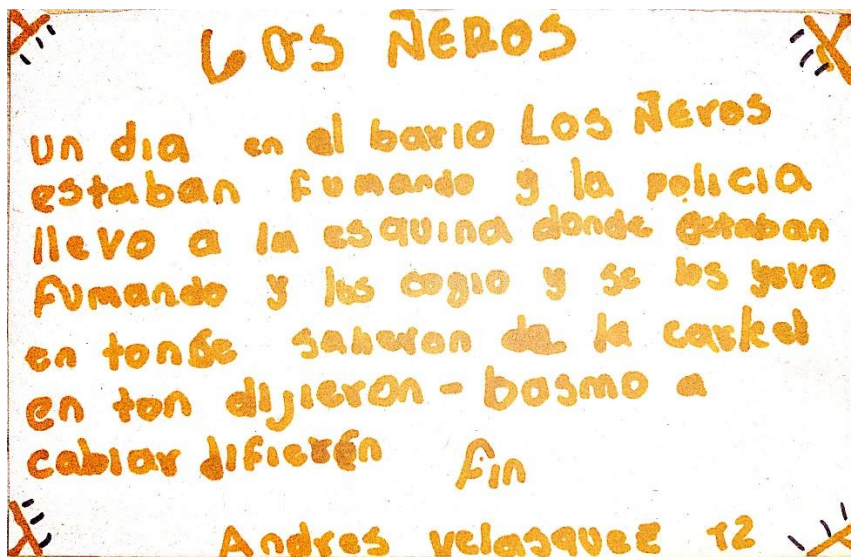 LOS ÑEROS
un dia en el bario Los Ñeros
estaban fumando y la policia
llevo a la esquina donde estaban
fumando y los cogio y se los yevo
en tonse salieron de la carkel
en ton dijieron - bosmo a
cabiar difierén fin
Andres velasquez T2